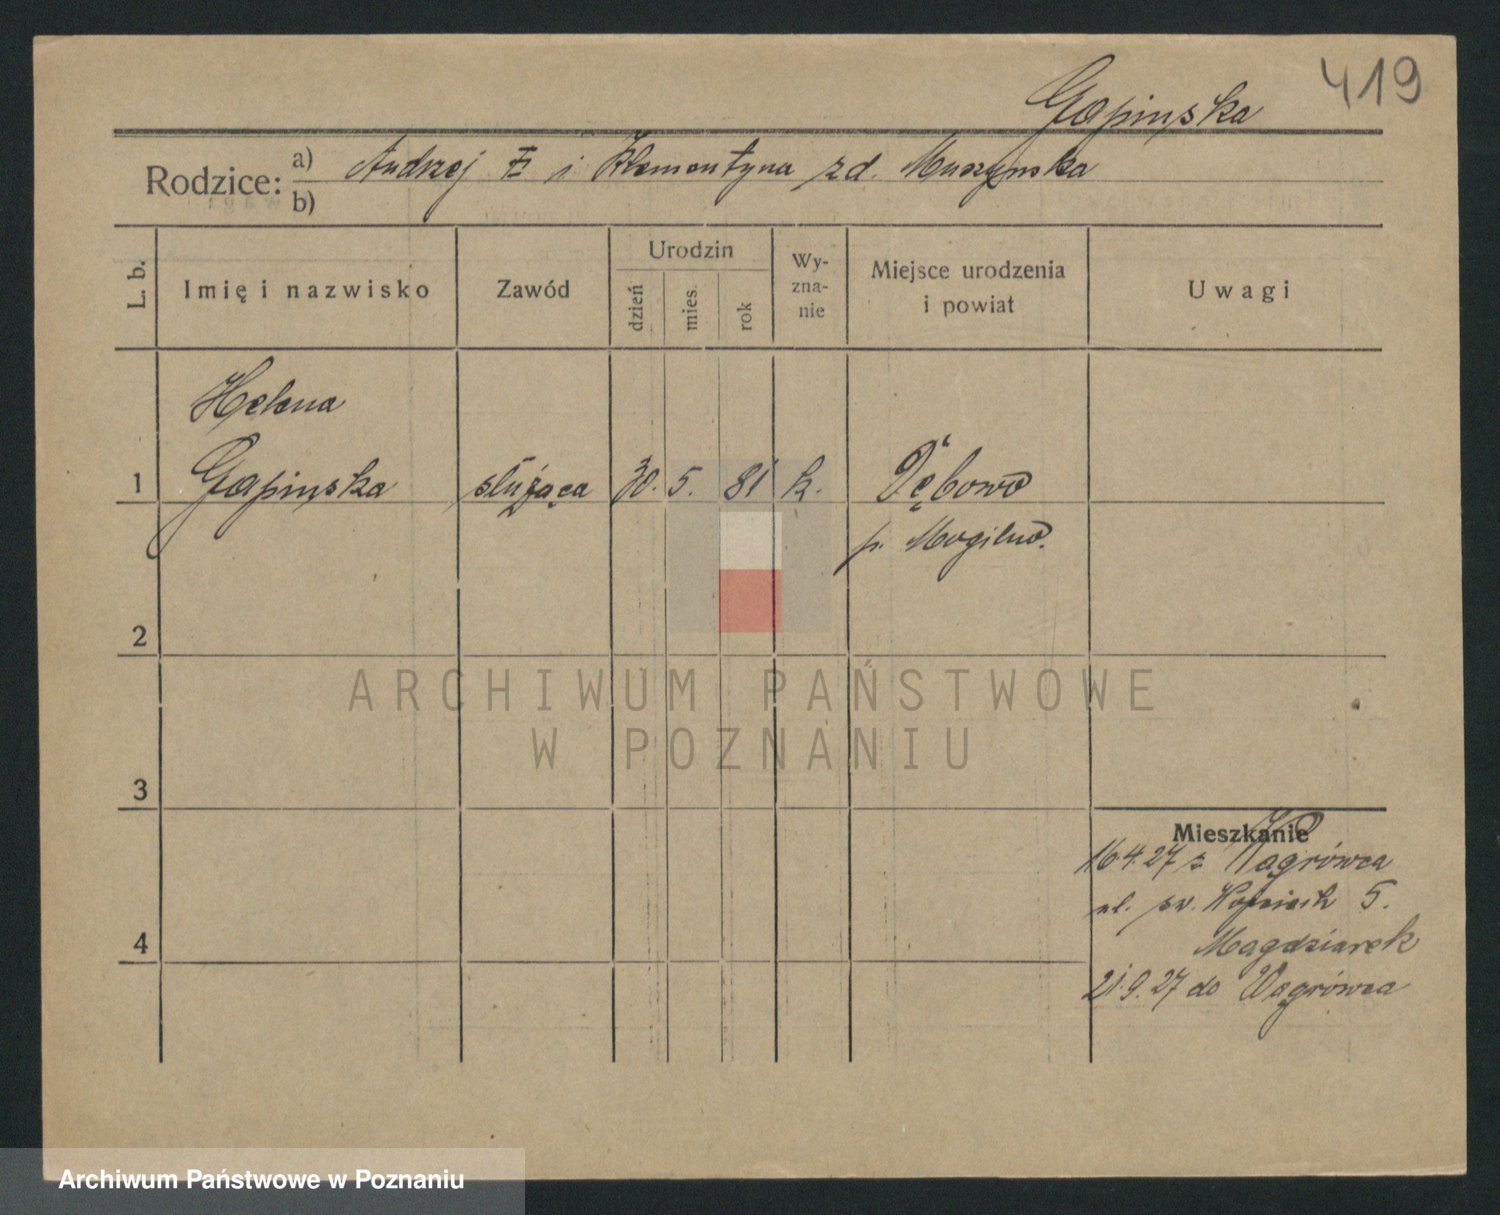 419
Gapinska
Rodzice: a) Andrzej G i Klementyna zd. Muszynska
b)
L. b.
Imię i nazwisko
Zawód
Urodzin
dzień
mies.
rok
Wy-
zna-
nie
Miejsce urodzenia
i powiat
Uwagi
Helena
1 Gapinska służąca 30. 5. 81 k. Dębowo
p. Mogilno.
2
3
4
Mieszkanie
16.4.27 z Wągrówca
ul. św. Wojciech 5.
Magdziarek
21.9.27 do Wągrówca
ARCHIWUM PAŃSTWOWE
W POZNANIU
Archiwum Państwowe w Poznaniu